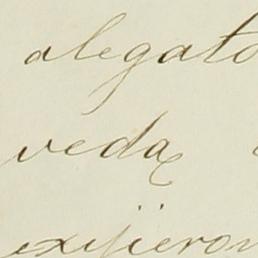 alegato
veda
exijieron